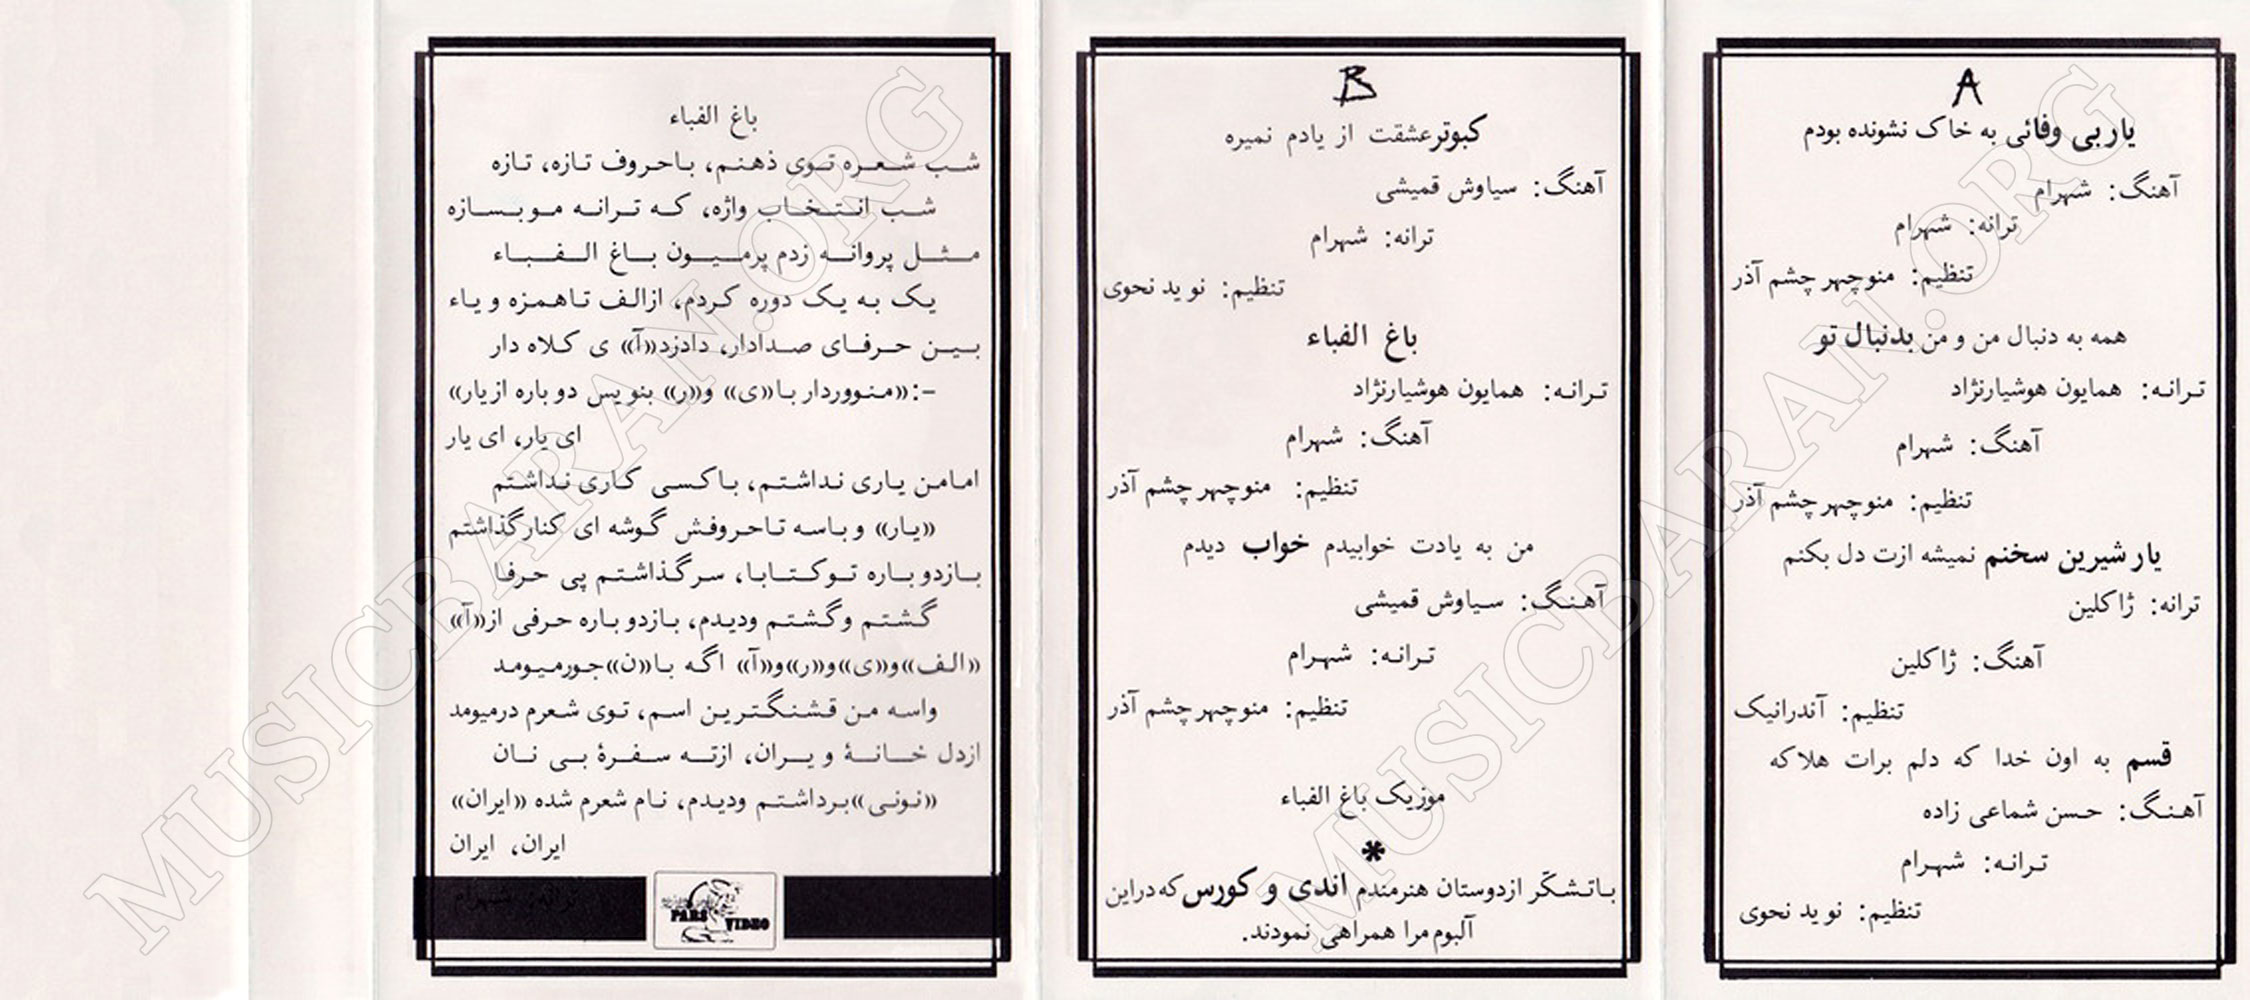 A
یار بی وفائی به خاک نشونده بودم
آهنگ: شهرام
ترانه: شهرام
تنظیم: منوچهر چشم آذر
همه به دنبال من و من بدنبال تو
ترانه: همایون هوشیارنژاد
آهنگ: شهرام
تنظیم: منوچهر چشم آذر
یار شیرین سخنم نمیشه ازت دل بکنم
ترانه: ژاکلین
آهنگ: ژاکلین
تنظیم: آندرانیک
قسم به اون خدا که دلم برات هلاکه
آهنگ: حسن شماعی زاده
ترانه: شهرام
تنظیم: نوید نحوی
B
کبوتر عشقت از یادم نمیره
آهنگ: سیاوش قمیشی
ترانه: شهرام
تنظیم: نوید نحوی
باغ الفباء
ترانه: همایون هوشیارنژاد
آهنگ: شهرام
تنظیم: منوچهر چشم آذر
من به یادت خوابیدم خواب دیدم
آهنگ: سیاوش قمیشی
ترانه: شهرام
تنظیم: منوچهر چشم آذر
موزیک باغ الفباء
*
با تشکّر از دوستان هنرمندم اندی و کورس که در این
آلبوم مرا همراهی نمودند.
باغ الفباء
شب شعره توی ذهنم، با حروف تازه، تازه
شب انتخاب واژه، که ترانه مو بسازه
مثل پروانه زدم پر میون باغ الفباء
یک به یک دوره کردم، از الف تا همزه و یاء
بین حرفای صدادار، داد زد «آ» ی کلاه دار
-: «منو وردار با «ی» و «ر» بنویس دوباره از یار»
ای یار، ای یار
اما من یاری نداشتم، با کسی کاری نداشتم
«یار» و باسه تا حروفش گوشه ای کنار گذاشتم
باز دوباره تو کتابا، سر گذاشتم پی حرفا
گشتم و گشتم و دیدم، باز دوباره حرفی از «آ»
«الف» و «ی» و «ر» و «آ» اگه با «ن» جور میومد
واسه من قشنگترین اسم، توی شعرم در میومد
از دل خانهٔ ویران، از ته سفرهٔ بی نان
«نونی» برداشتم و دیدم، نام شعرم شده «ایران»
ایران، ایران
ترانه: شهرام
PARS VIDEO
MUSICBARAN.ORG
MUSICBARAN.ORG